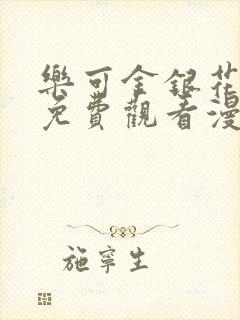 樂可金銀花
免費觀看漫
施寧生